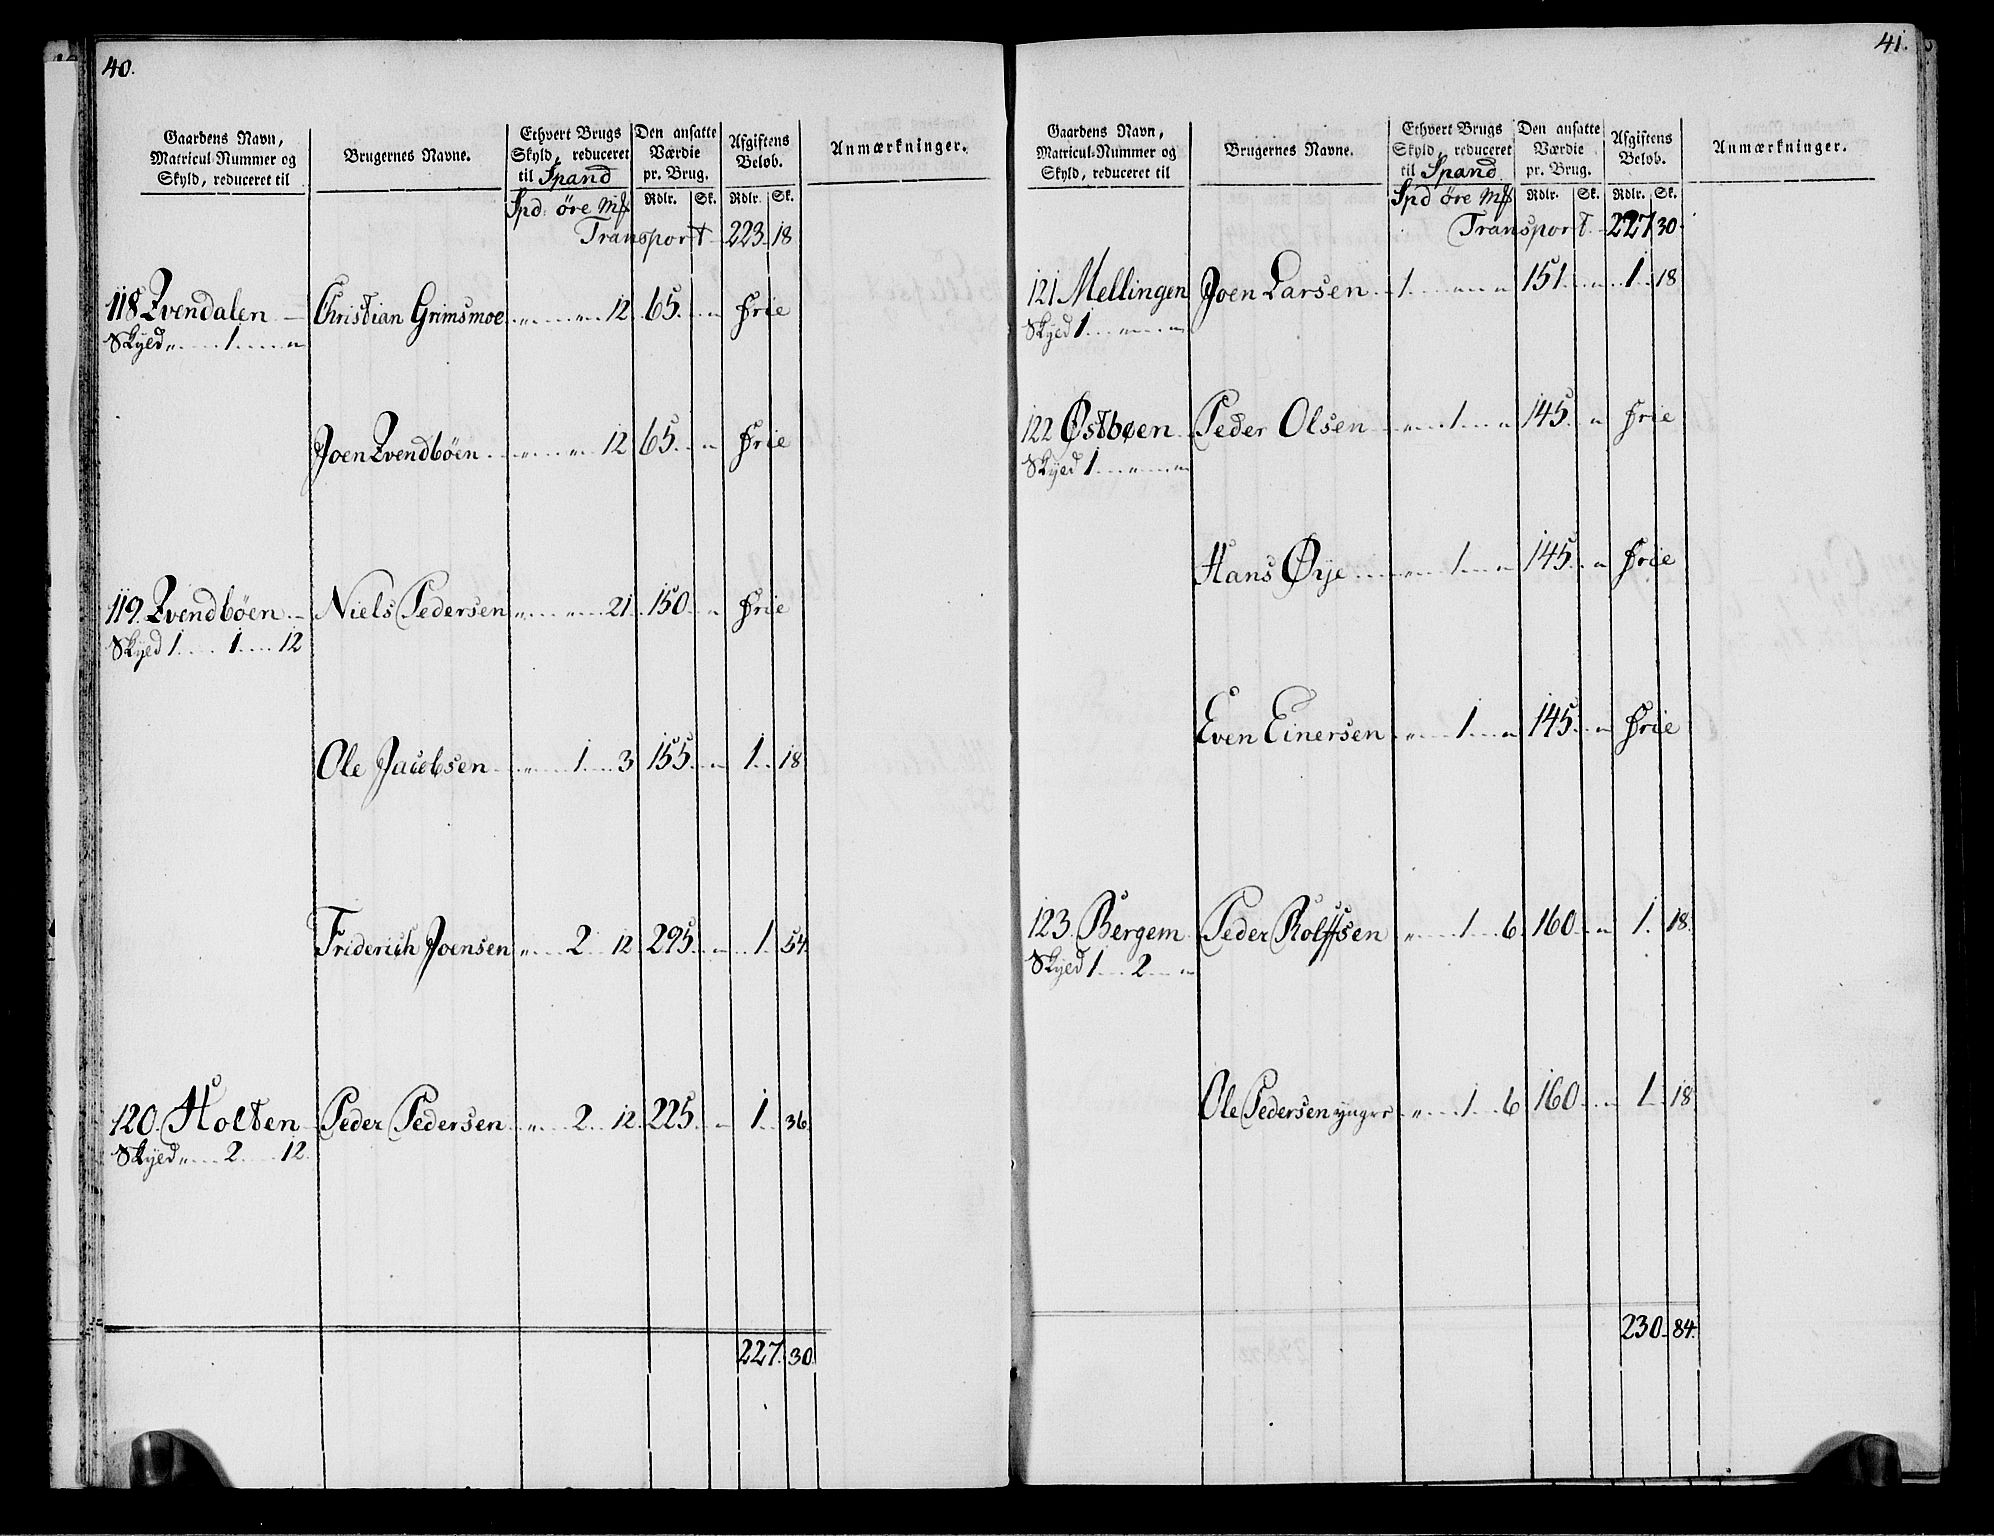 40.
Gaardens Navn, Matricul-Nummer og Skyld, reduceret til
Brugernes Navne.
Ethvert Brugs Skyld, reduceret til Spand
Den ansatte Værdie pr. Brug.
Afgiftens Beløb.
Anmærkninger.
Spd: öre Mk Rdlr. Sk. Rdlr. Sk.
Transport 223. 18
118 Zvendalen Christian Grimsmoe „ „ 12 65. „ frie
Skyld „ 1 „
Joen Zvendböen „ „ 12 65. „ frie
119. Zvendböen Niels Pedersen „ „ 21. 150. „ frie
Skyed 1 1 12
Ole Jacobsen „ 1 3 155. „ 1. 18
Friderich Joensen „ 2 12 295. „ 1 54
120. Holten Peder Pedersen „ 2 12. 225. „ 1. 36.
Skyed „ 2 12.
227. 30.
41.
Gaardens Navn, Matricul-Nummer og Skyld, reduceret til
Brugernes Navne.
Ethvert Brugs Skyld, reduceret til Spand
Den ansatte Værdie pr. Brug.
Afgiftens Beløb.
Anmærkninger.
Spd öre Mk Rdlr. Sk. Rdlr. Sk.
Transport. 227 30.
121 Mellingen Joen Larsen 1 „ „ 151. „ 1. 18
Skyed 1 „ „
122 Østbøen Peder Olsen „ 1 „ 145. „ frie
Skyed 1 „ „
Hans Øye „ 1 „ 145. „ frie
Even Einersen „ 1 „ 145. „ frie
123. Bergem Peder Rolffsen „ 1 6. 160. „ 1. 18.
Skyed 1 2 „
Ole Pedersen yngre „ 1 6 160. „ 1. 18
230. 84.